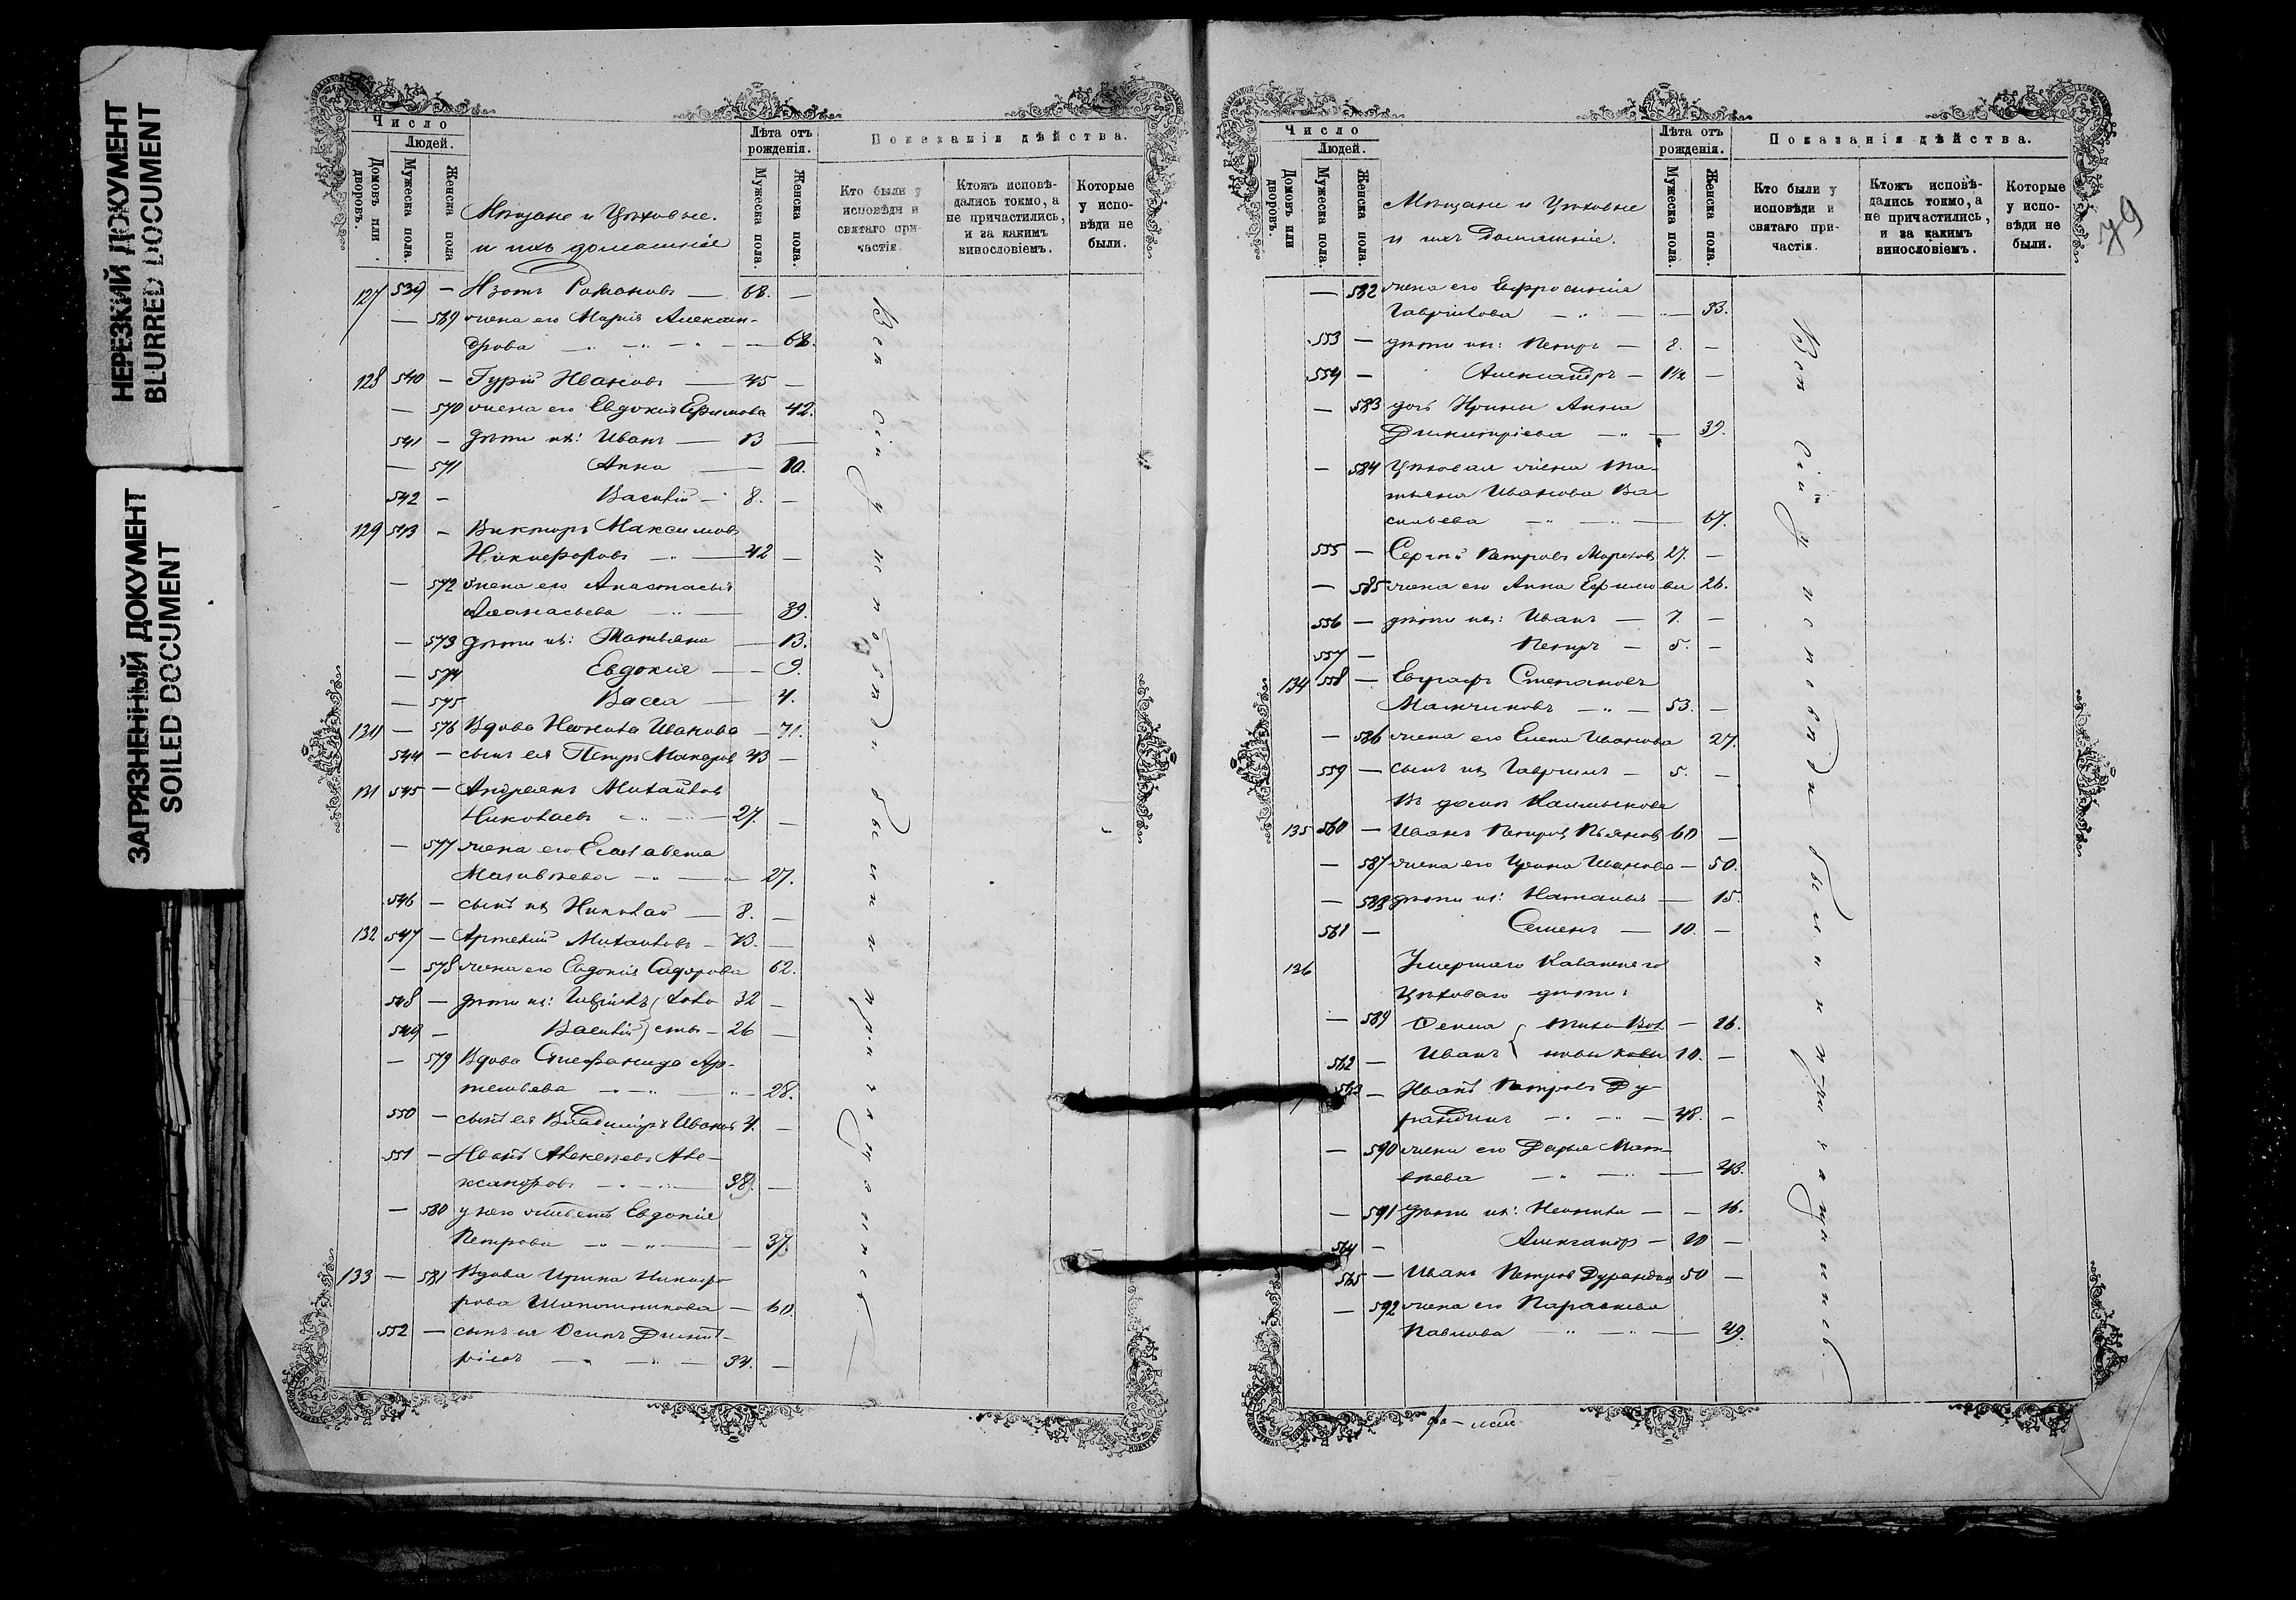 НЕРЕЗКИЙ ДОКУМЕНТ
BLURRED DOCUMENT
ЗАГРЯЗНЕННЫЙ ДОКУМЕНТ
SOILED DOCUMENT
Число
Людей.
Домовъ или дворовъ.
Мужеска пола.
Женска пола
Мѣщане и Цѣховые.
и ихъ домашніе
Лѣта отъ рожденія.
Мужеска пола.
Женска пола.
Показанія дѣйства.
Кто были у исповѣди и святаго причастія.
Ктожъ исповѣдались токмо, а не причастились, и за какимъ винословіемъ.
Которые у исповѣди не были.
127 539 — Изотъ Романовъ — 68. —
— 569 жена его Марія Алексан-
дрова — 68.
128 540 — Гурій Ивановъ — 45 —
— 570 жена его Евдокія Ефимова 42.
541 — дѣти ихъ: Иванъ — 13 —
— 571 Анна — 10.
542 — Василій — 8. —
129 543 — Викторъ Максимовъ
Никифоровъ — 42 —
— 572 жена его Анастасія
Аѳанасьева — 39.
— 573 дѣти ихъ: Татьяна — 13.
— 574 Евдокія — 9.
— 575 Васса — 4.
130 — 576 Вдова Неонила Иванова — 71.
544 — сынъ ея Петръ Макаровъ 43 —
131 545 — Андреянъ Михайловъ
Николаевъ — 27. —
— 577 жена его Елизавета
Матвѣева — 27.
546 — сынъ ихъ Николай — 8. —
132 547 — Артемій Михайловъ — 73. —
— 578 жена его Евдокія Сидорова 62.
548 — дѣти ихъ: Гавріилъ холо 32 —
549 — Василій сты — 26 —
— 579 Вдова Стефанида Ар-
темьева — 28.
550 — сынъ ея Владиміръ Ивановъ 4. —
551 — Иванъ Алексѣевъ Але-
ксандровъ — 38. —
— 580 у него Евдокія
Петрова — 37.
133 — 581 Вдова Ирина Никифо
рова Шапошникова — 60.
552 — сынъ ея Осипъ Дмит-
ріевъ — 34. —
Всѣ сіи у исповѣди были и причащались
79
Число
Людей.
Домовъ или дворовъ.
Мужеска пола.
Женска пола.
Мѣщане и Цѣховые
и ихъ Домашніе.
Лѣта отъ рожденія.
Мужеска пола.
Женска пола.
Показанія дѣйства.
Кто были у исповѣди и святаго причастія.
Ктожъ исповѣдались токмо, а не причастились, и за какимъ винословіемъ.
Которые у исповѣди не были.
— 582 жена его Евфросинія
Гаврилова — 33.
553 — дѣти ихъ: Петръ — 8. —
554 — Александръ — 1½ —
— 583 дочь Ирины Анна
Димитріева — 39.
— 584 Цѣховая жена Та-
тьяна Иванова Ва-
сильева — 67.
555 — Сергѣй Петровъ 27. —
— 585 жена его Анна Ефимова 26.
556 — дѣти ихъ: Иванъ — 7. —
557 — Петръ — 5. —
134 558 — Евграфъ Степановъ
— 53. —
— 586 жена его Елена Иванова 27.
559 — сынъ ихъ Гавріилъ — 5. —
Въ домѣ Калмыкова
135 560 — Иванъ Петровъ Пьяновъ 60 —
— 587 жена его Ирина Иванова — 50.
— 588 дѣти ихъ: Наталья — 15.
561 — Семенъ — 10. —
136 Умершаго
Цѣховаго дѣти:
— 589 Тихо — 16.
562 — Иванъ новы 10. —
563 — Иванъ Петровъ Ду-
рандинъ — 48. —
— 590 жена его Дарья Мат-
вѣева — 43.
— 591 дѣти ихъ: Неонила — 16.
564 — Александръ — 10 —
565 — Иванъ Петровъ Дурандинъ 50 —
— 592 жена его Параскева
Павлова — 49.
Всѣ сіи у исповѣди были и причащались